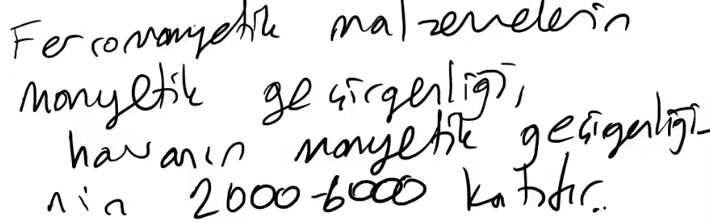 Ferromanyetik malzemelerin
manyetik geçirgenliği,
havanın manyetik geçirgenliği-
nin 2000-6000 katıdır.